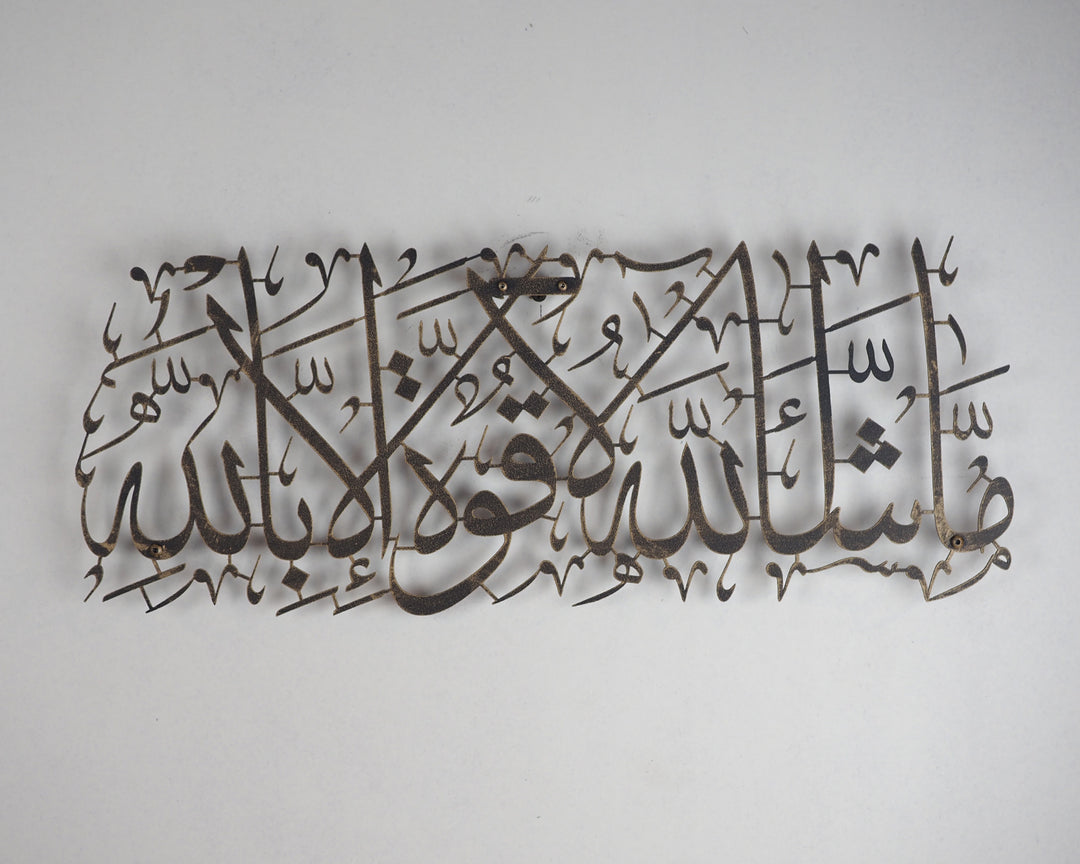 مَا شَاءَ اللّٰهُ لَا قُوَّةَ إِلَّا بِاللّٰهِ